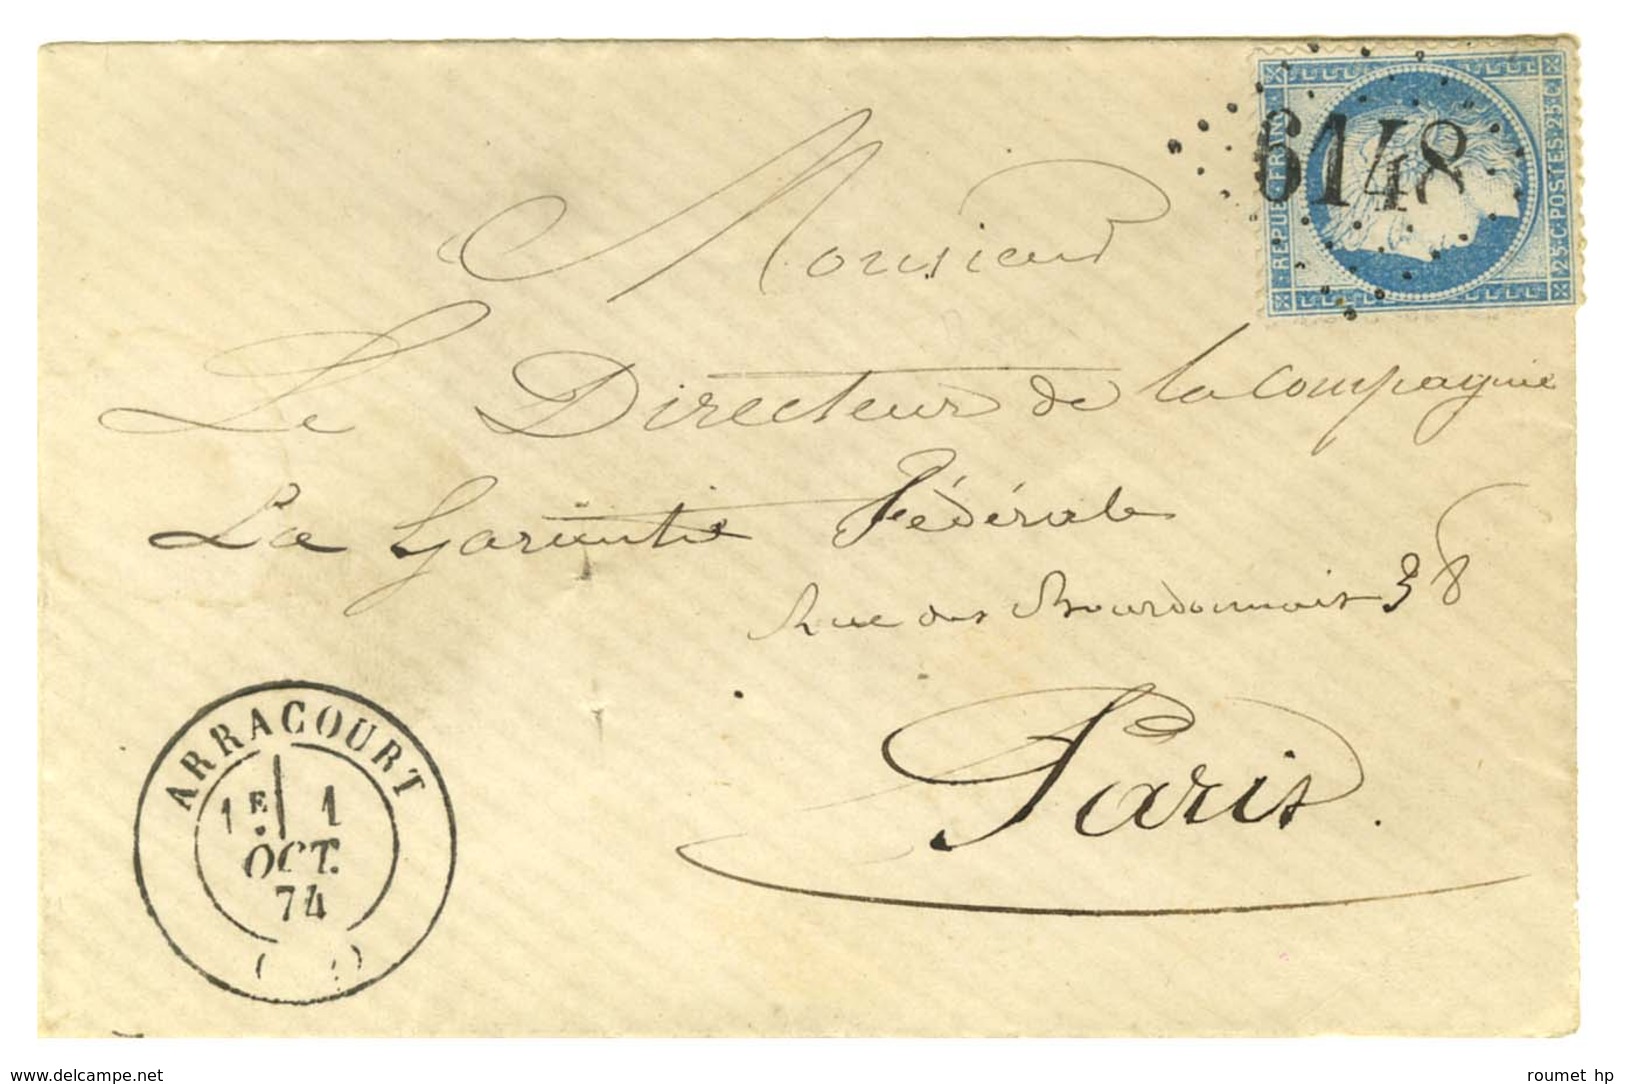 6148
REPUB · FRANC
25 · C · POSTES · 25 · C
Monsieur
Le Directeur de la Compagnie
La Garantie Fédérale
Rue des Bourdonnais 38
Paris.
ARRACOURT
1E 1
OCT.
74
www.delcampe.net
roumet hp